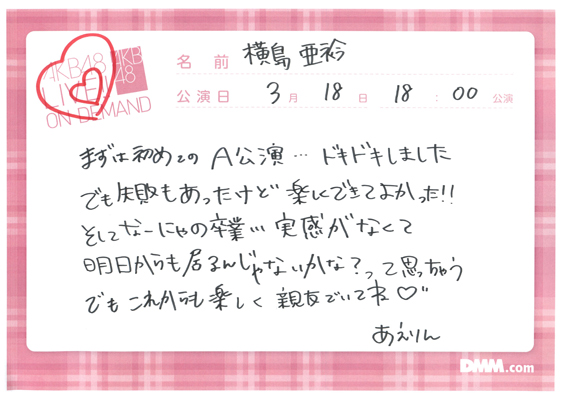 AKB48
LIVE!!
ON DEMAND
AKB
48
名前 横島亜衿
公演日 3月18日 18:00公演
まずは初めてのA公演… ドキドキしました
でも失敗もあったけど楽しくできてよかった!!
そしてなーにゃの卒業… 実感がなくて
明日からも居るんじゃないかな?って思っちゃう
でもこれからも楽しく親友でいてね♡"
あえりん
DMM.com